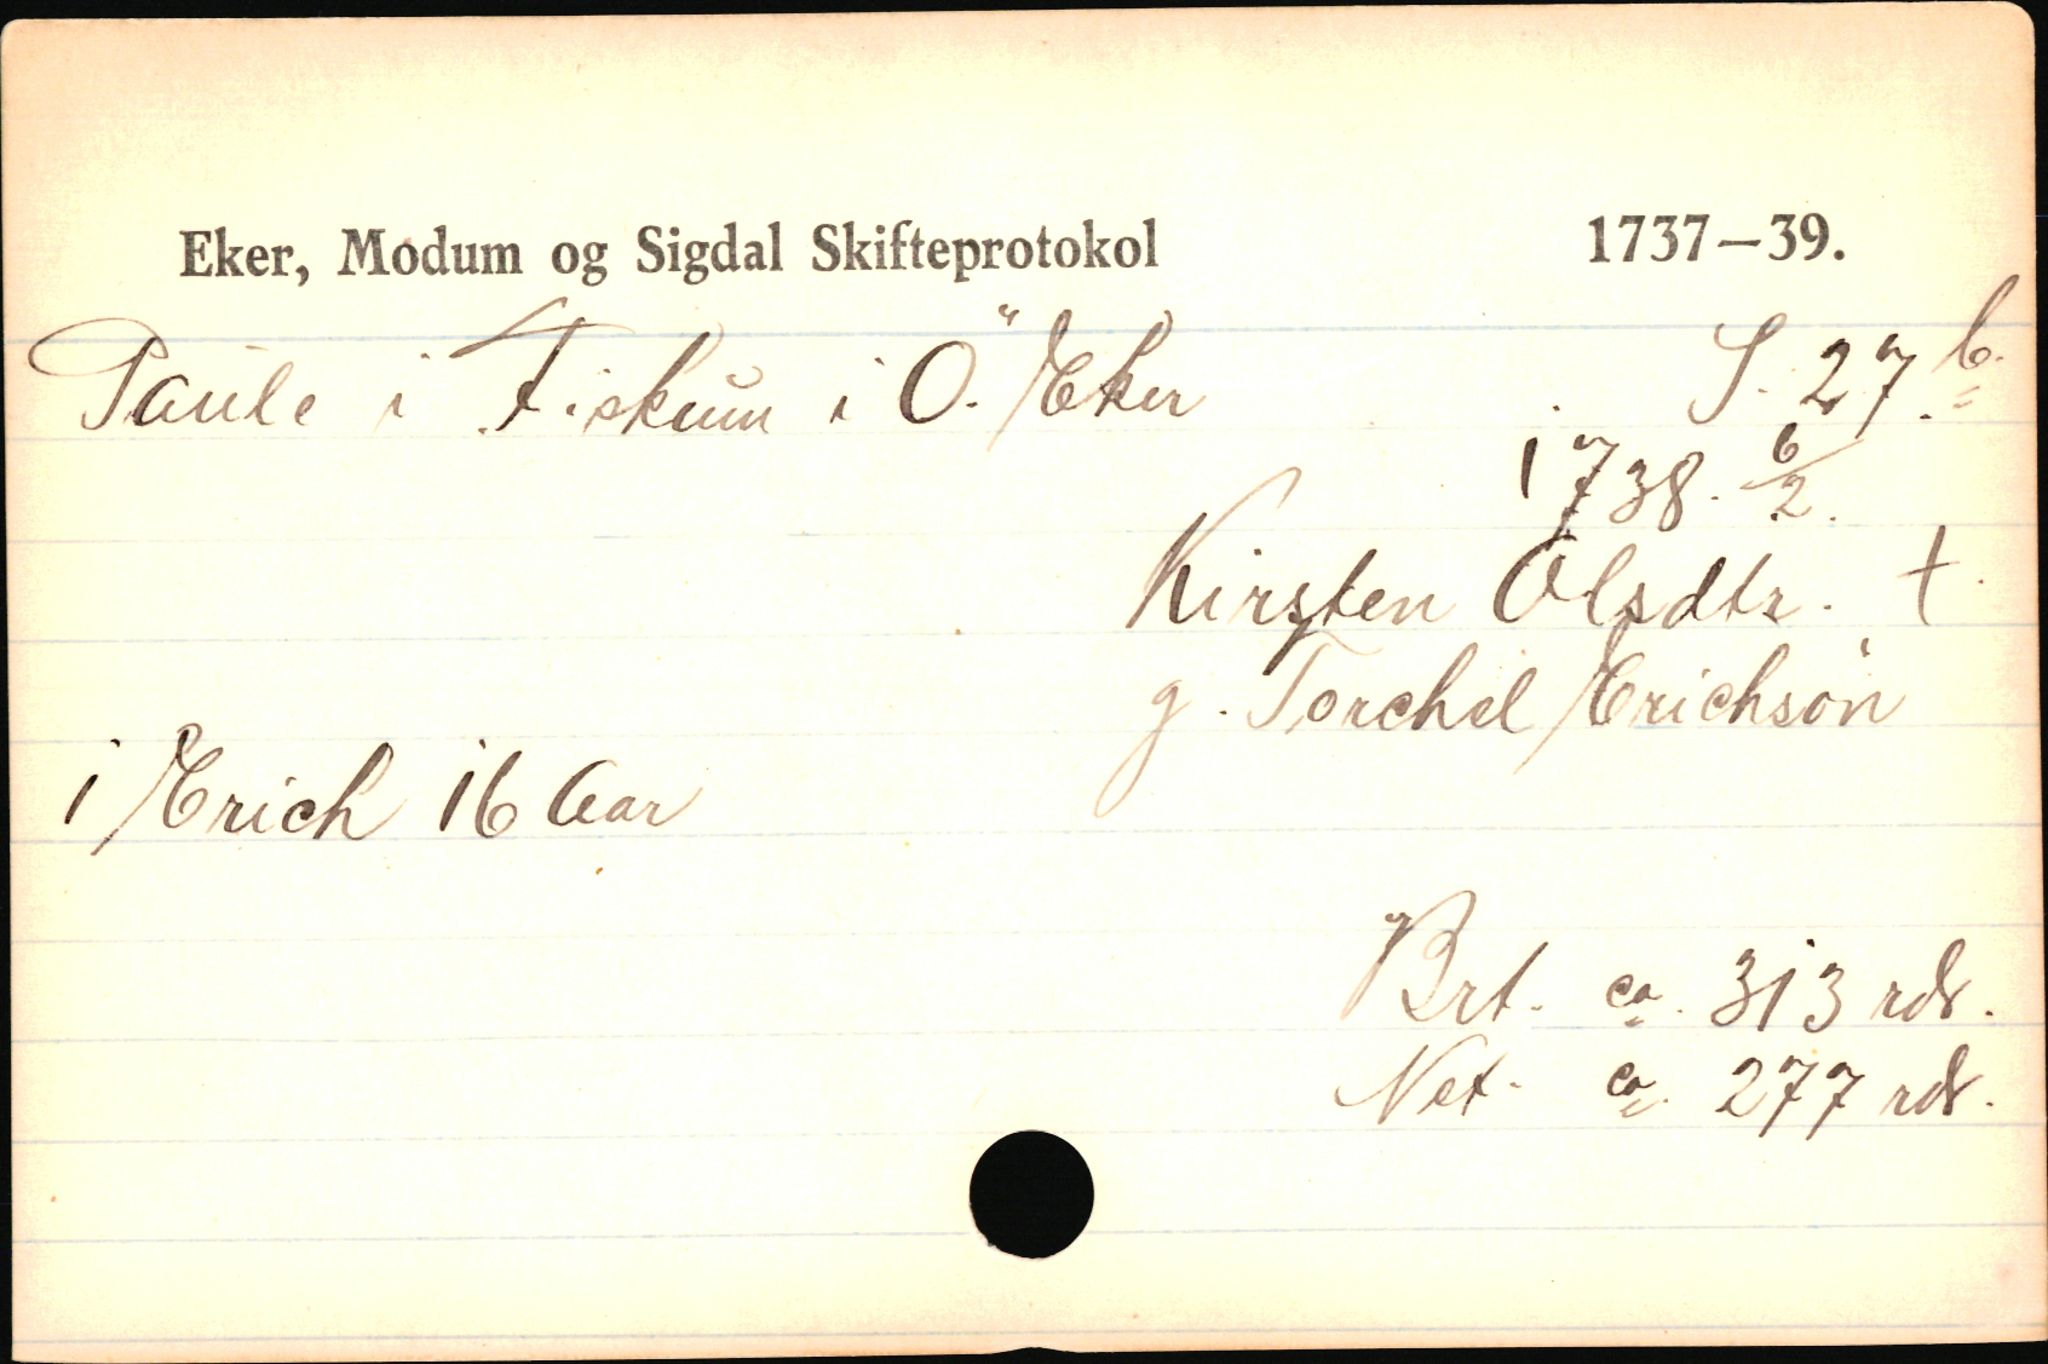 Eker, Modum og Sigdal Skifteprotokol 1737–39.
Paule i Fiskum i Ö. Eker S. 27 b.
1738. 6/2.
Kirsten Olsdtr. †.
g. Torchel Erichson
1 Erich 16 Aar
Brt. ca. 313 rdr.
Net. ca. 277 rdr.